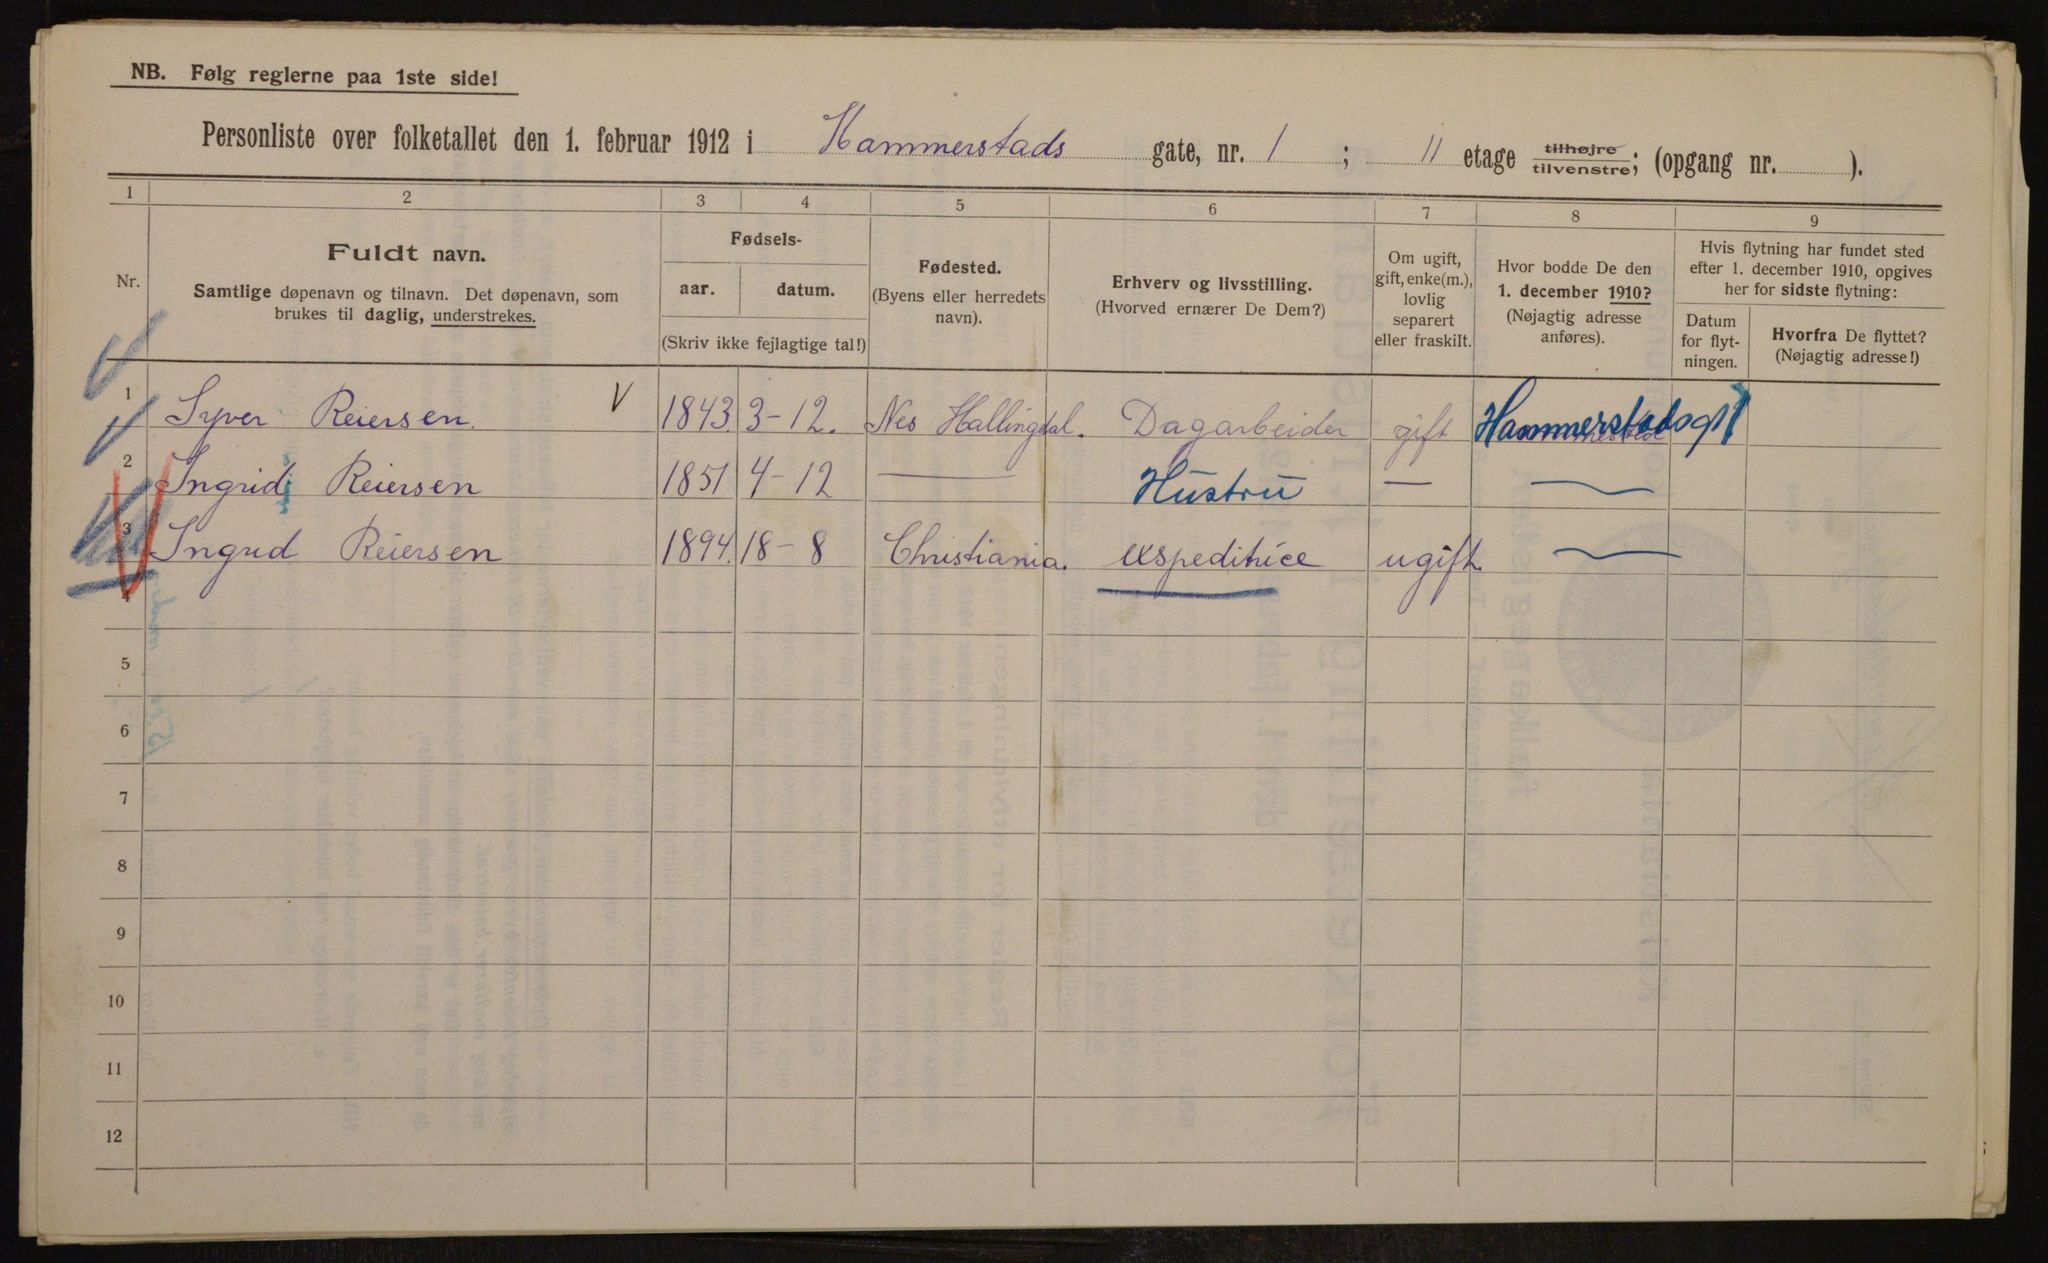 NB. Følg reglerne paa 1ste side!
Personliste over folketallet den 1. februar 1912 i Hammerstads gate, nr. 1 ; 11 etage tilhøjre/tilvenstre; (opgang nr. ).
1 2 3 4 5 6 7 8 9
Nr.
Fuldt navn.
Samtlige døpenavn og tilnavn. Det døpenavn, som
brukes til daglig, understrekes.
Fødsels-
aar. datum.
(Skriv ikke fejlagtige tal!)
Fødested.
(Byens eller herredets
navn).
Erhverv og livsstilling.
(Hvorved ernærer De Dem?)
Om ugift,
gift, enke(m.),
lovlig
separert
eller fraskilt.
Hvor bodde De den
1. december 1910?
(Nøjagtig adresse
anføres).
Hvis flytning har fundet sted
efter 1. december 1910, opgives
her for sidste flytning:
Datum
for flyt-
ningen.
Hvorfra De flyttet?
(Nøjagtig adresse!)
1 Syver Reiersen. V 1843. 3-12. Nes Hallingdal. Dagarbeider gift Hammerstadsgt 1
2 Ingrid Reiersen 1851 4-12 — Hustru — —
3 Ingrid Reiersen 1894. 18-8 Christiania. expeditrice ugift. —
4
5
6
7
8
9
10
11
12